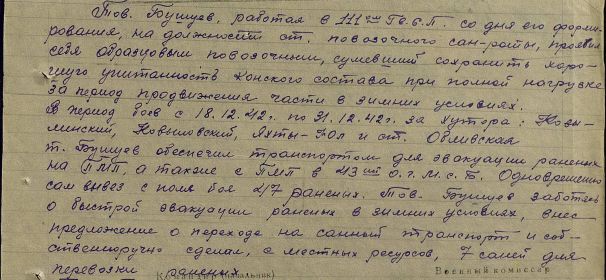 Тов. Бушуев, работая в 111 гв. С.П. со дня его форми-
рования, на должности ст. повозочного сан-роты, проявил
себя образцовым повозочным, сумевший сохранить хоро-
шую упитанность конского состава при полной нагрузке
за период продвижения части в зимних условиях.
В период боев с 18.12.42г. по 31.12.42г. за хутора: Ковы-
линский, Ковыловский, Яхты-Юл и ст. Обливская
т. Бушуев обеспечил транспортом для эвакуации раненых
на ПМП, а также с ПМП в 43ий О.г.М.с.Б. Одновременно
сам вывез с поля боя 47 раненых. Тов. Бушуев заботясь
о быстрой эвакуации раненых в зимних условиях, внес
предложение о переходе на санный транспорт и соб-
ственноручно сделал, с местных ресурсов, 7 саней для
перевозки раненых.
Военный комиссар